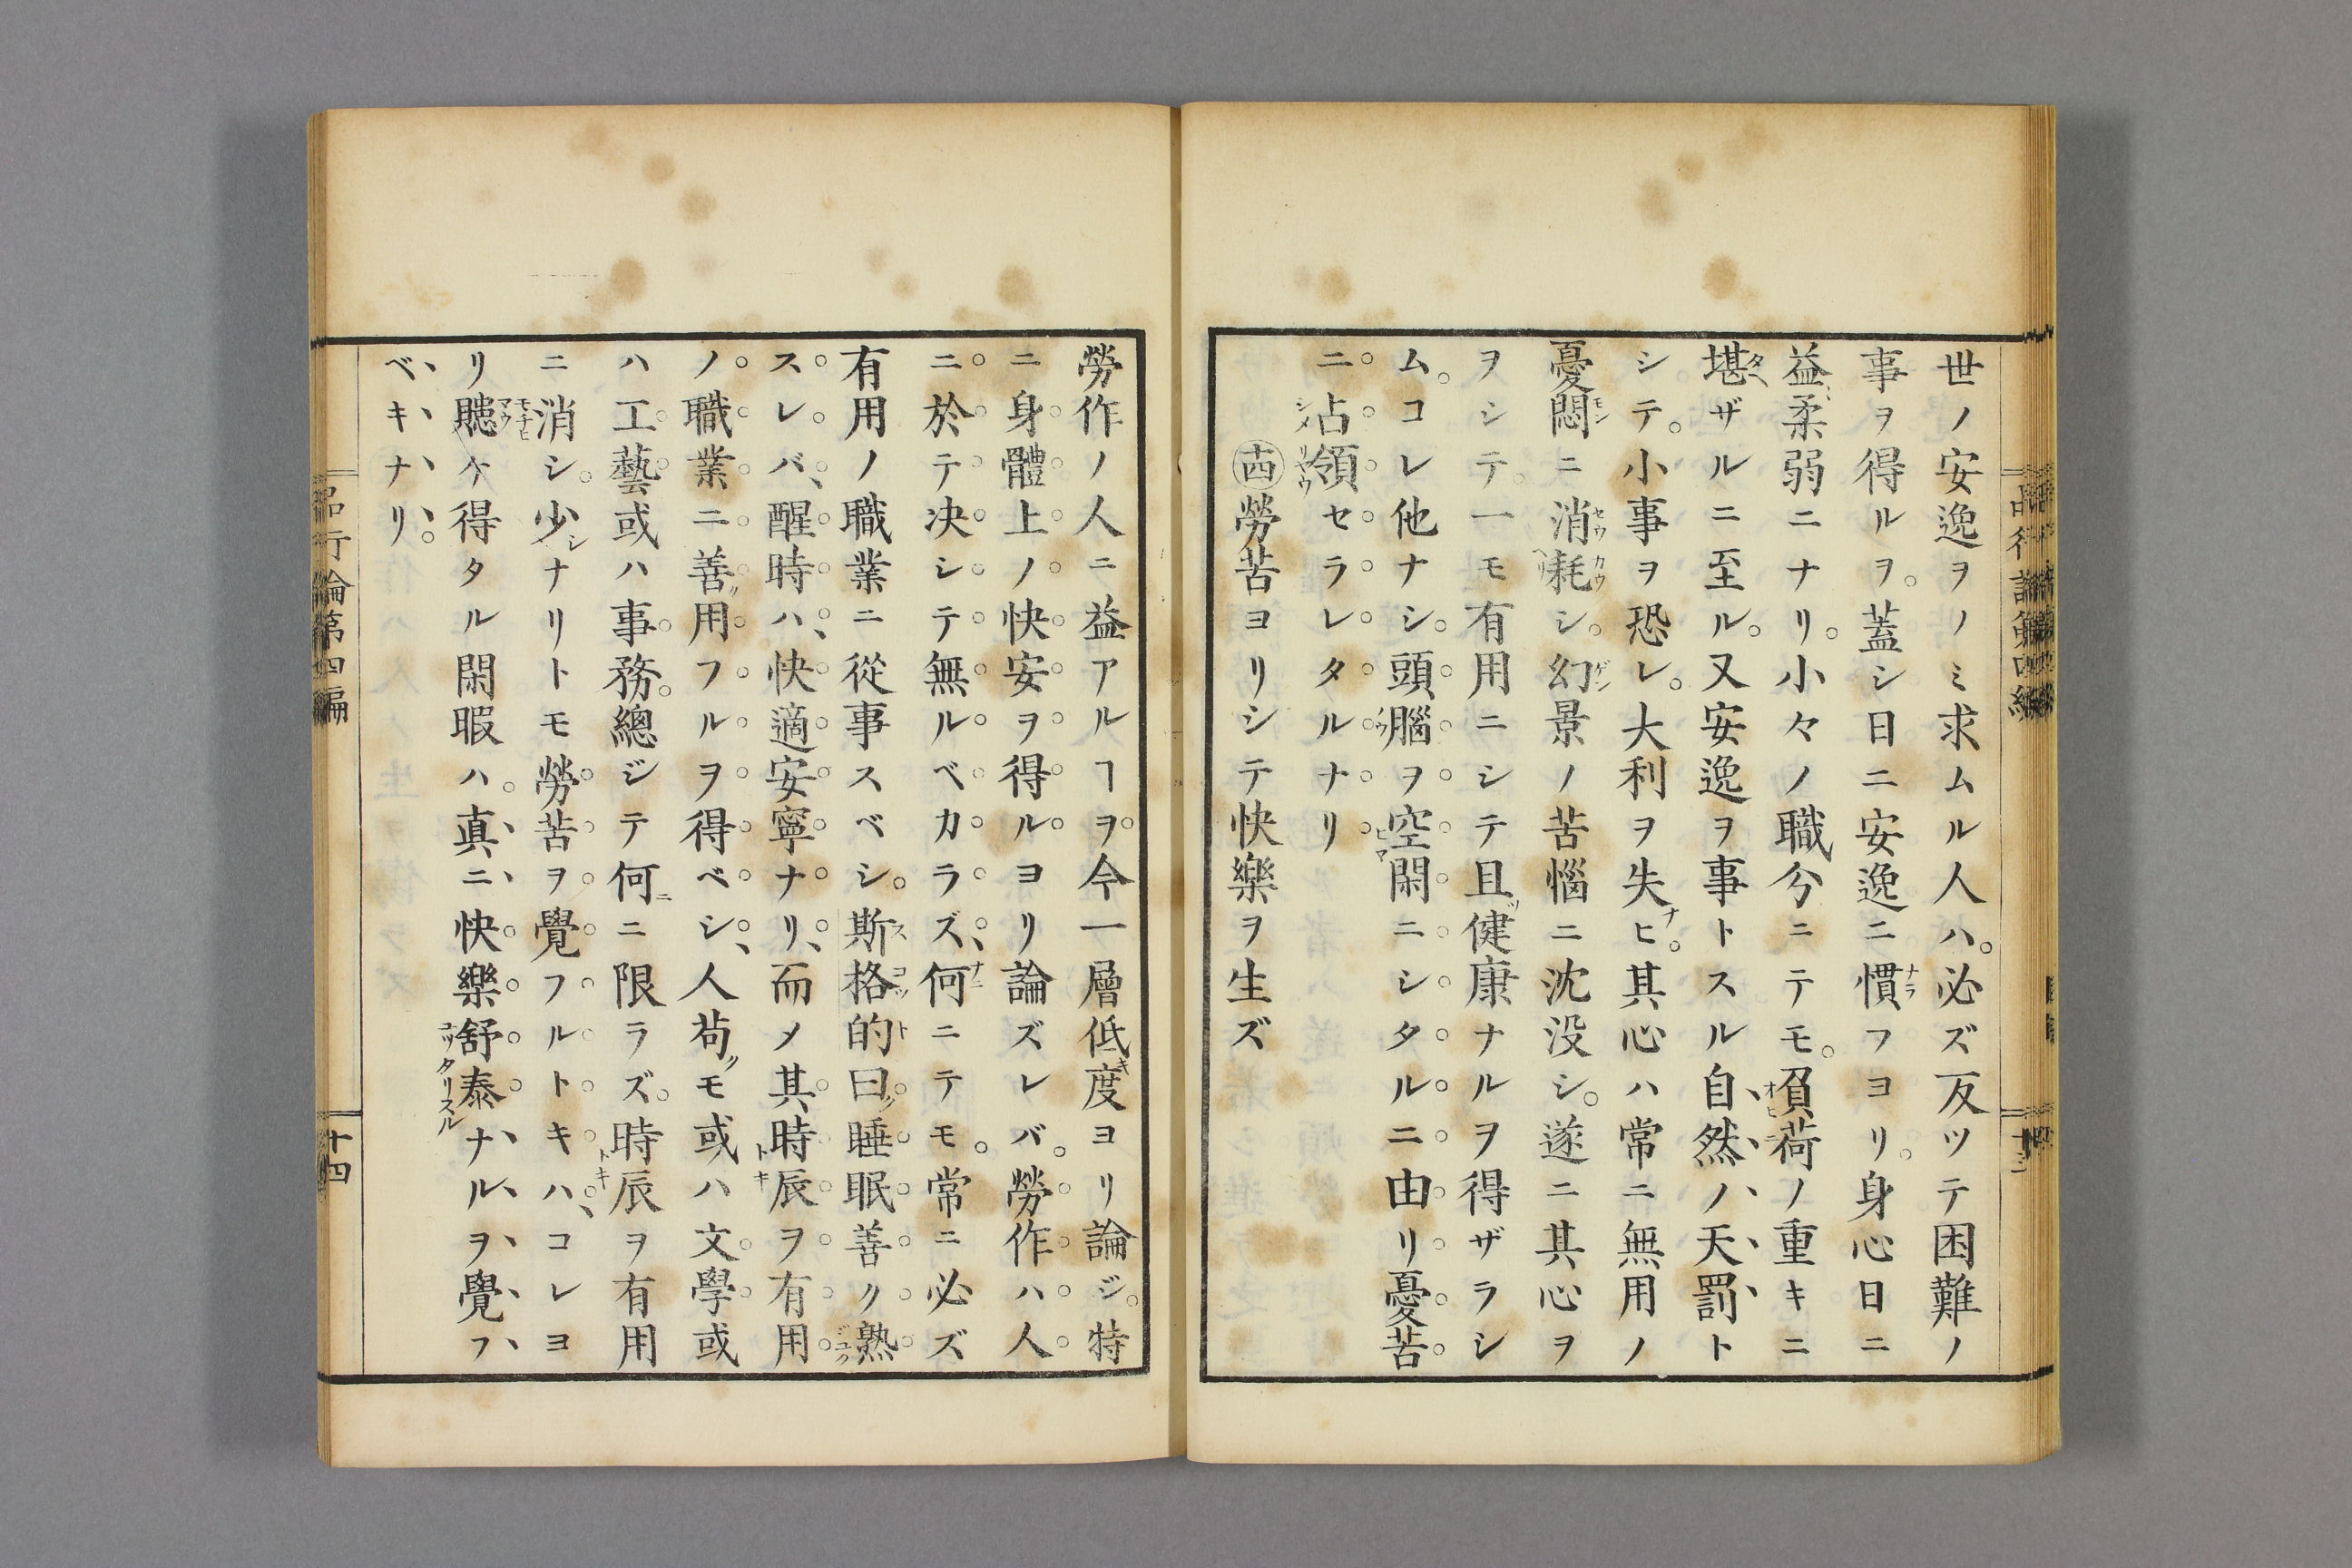 世ノ安逸ヲノミ求ムル人ハ。必ズ反ツテ困難ノ
事ヲ得ルヲ。蓋シ日ニ安逸ニ慣フヨリ。身心日ニ
益柔弱ニナリ。小々ノ職分ニテモ。負荷ノ重キニ
堪ザルニ至ル。又安逸ヲ事トスル自然ノ天罰ト
シテ。小事ヲ恐レ。大利ヲ失ヒ。其心ハ常ニ無用ノ
憂悶ニ消耗シ。幻景ノ苦惱ニ沈没シ。遂ニ其心ヲ
ヲシテ。一モ有用ニシテ且健康ナルヲ得ザラシ
ム。コレ他ナシ。頭腦ヲ空閑ニシタルニ由リ憂苦
ニ沾領セラレタルナリ
㊃勞苦ヨリシテ快樂ヲ生ズ
勞作ノ人ニ益アルヿヲ。今一層低度ヨリ論ジ。特
ニ身體上ノ快安ヲ得ルヨリ論ズレバ。勞作ハ人
ニ於テ决シテ無ルベカラズ、何ニテモ。常ニ必ズ
有用ノ職業ニ從事スベシ。斯格的曰睡眠善ク熟
スレバ、醒時ハ、快適安寧ナリ、而メ其時辰ヲ有用
ノ職業ニ善用フルヲ得ベシ、人苟モ或ハ文學或
ハ工藝或ハ事務。總ジテ何ニ限ラズ。時辰ヲ有用
ニ消シ。少シナリトモ勞苦ヲ覺フルトキハ、コレヨ
リ贃ケ得タル閑暇ハ。真ニ快樂舒泰ナルヲ覺フ
ベキナリ。
品行論第四編
十四